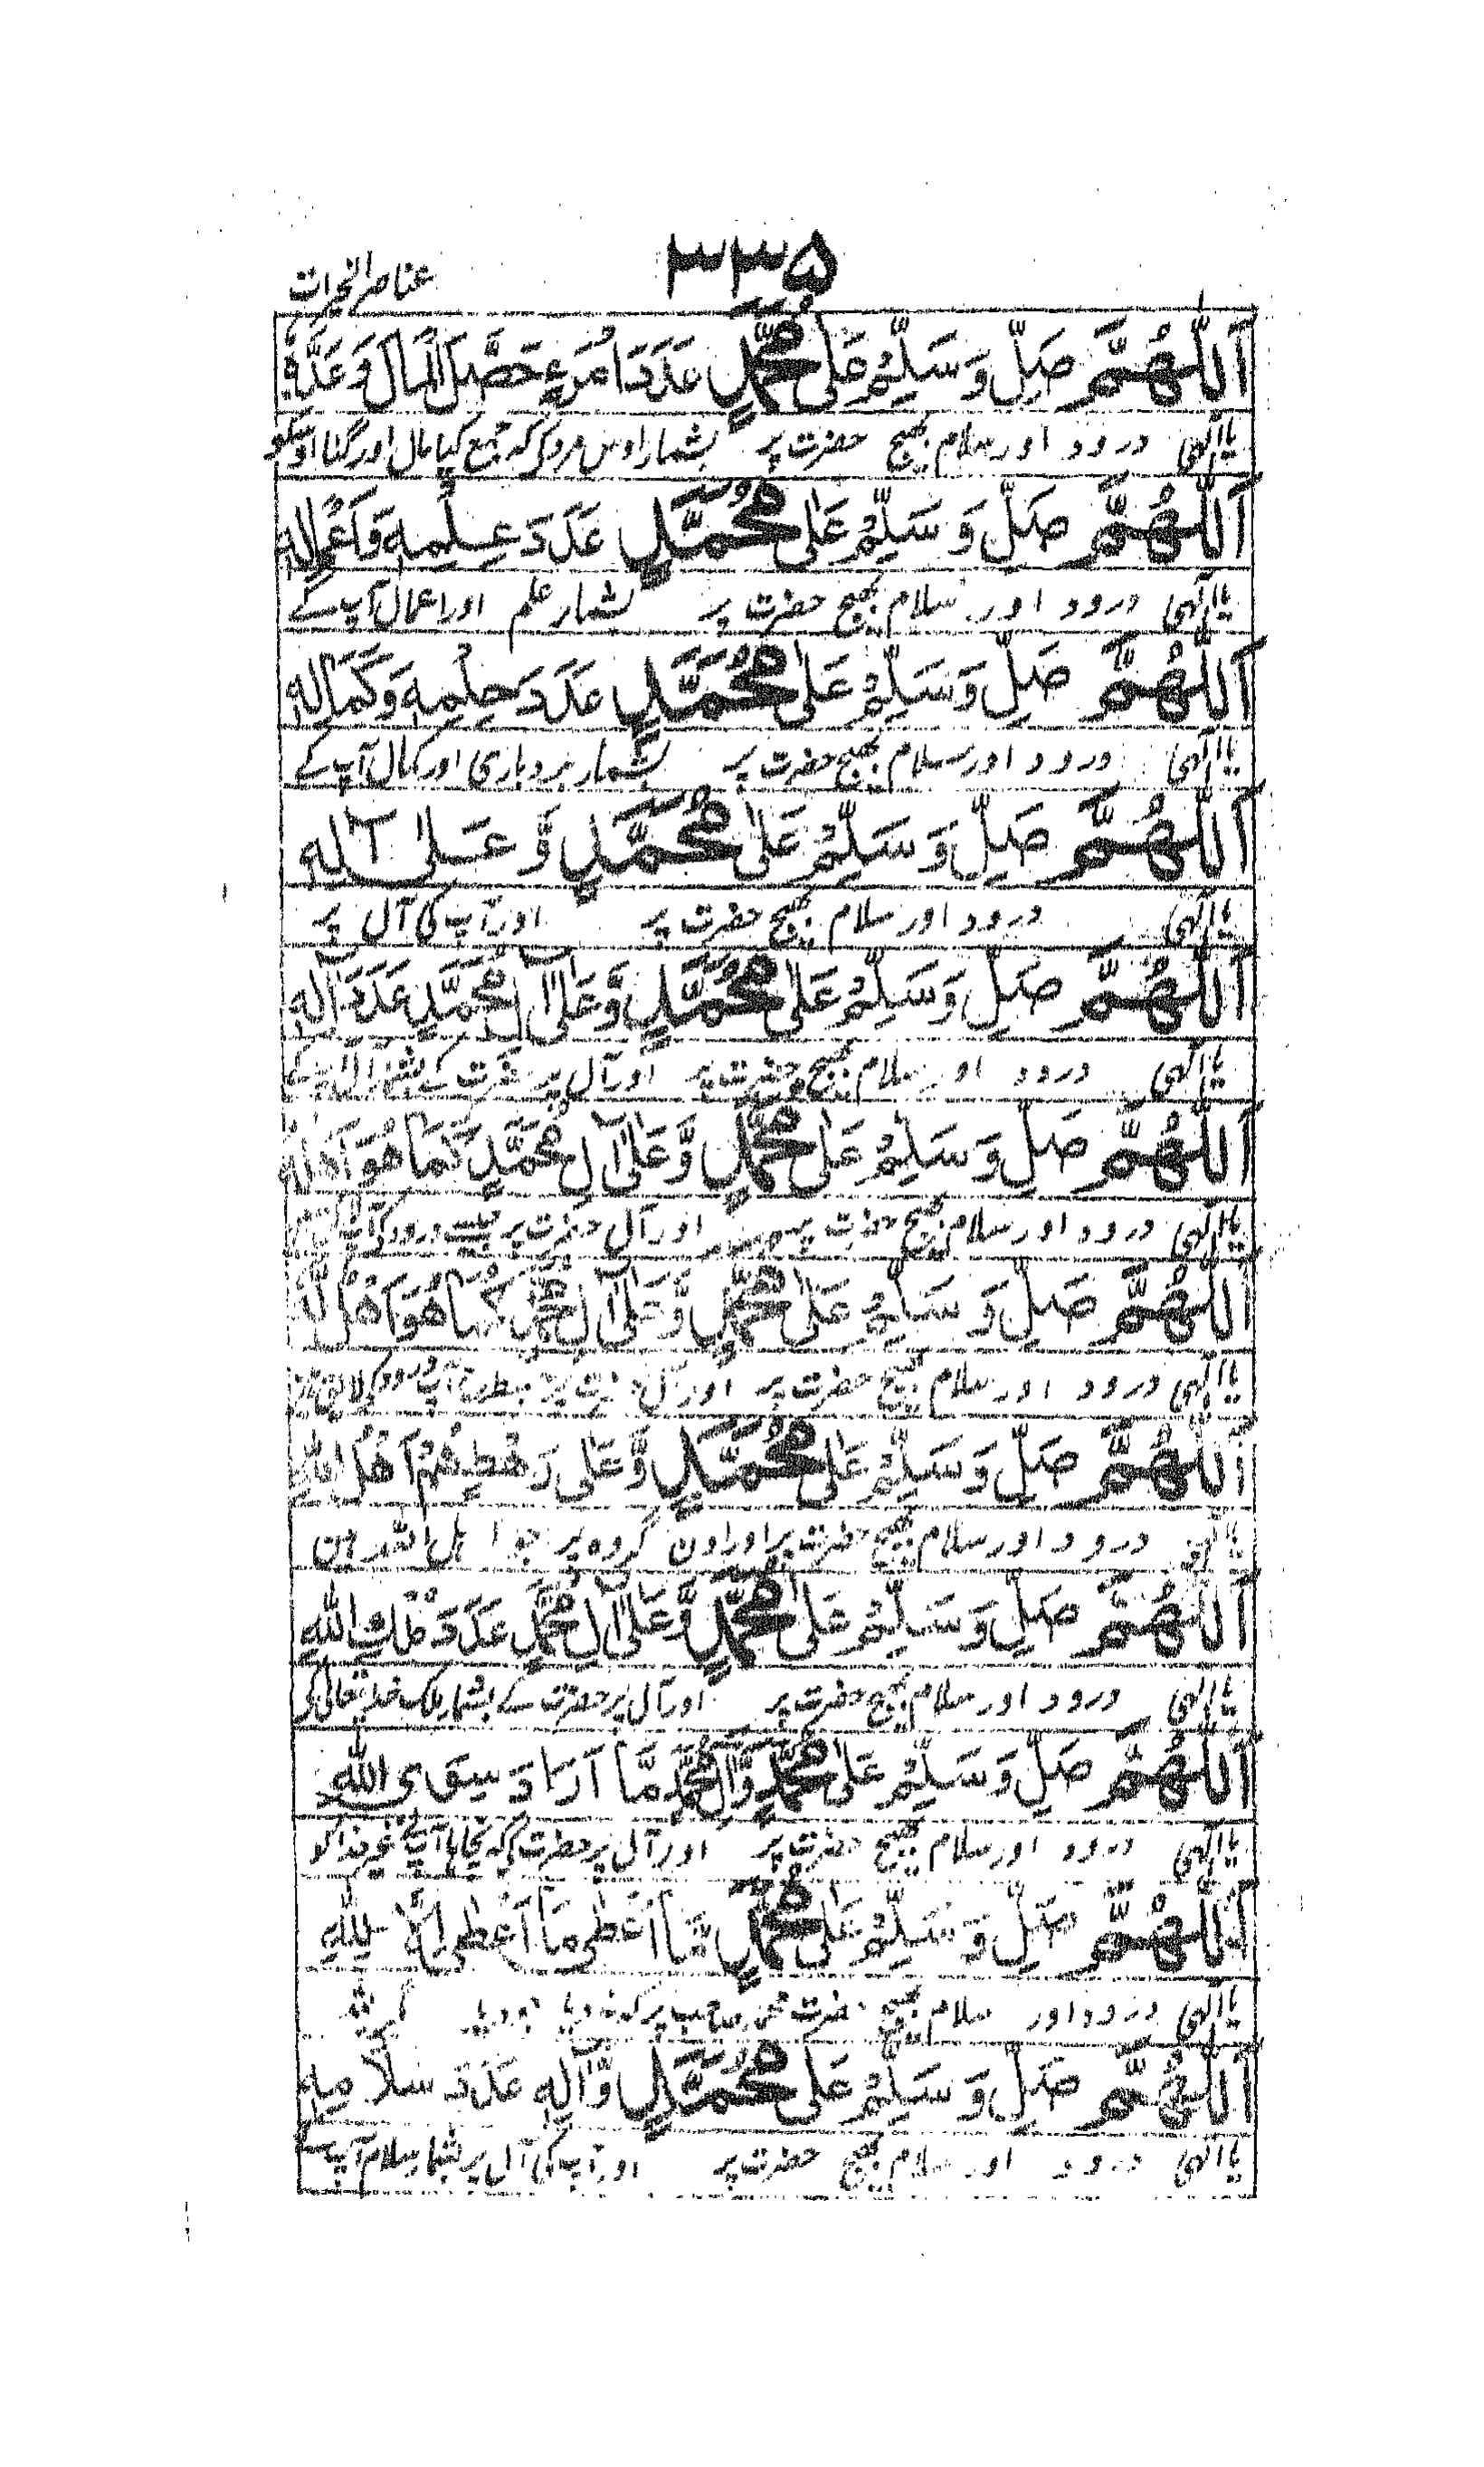 ۳۳۵
عناصر الخیرات
اَللّٰهُمَّ صَلِّ وَسَلِّمْ عَلٰی مُحَمَّدٍ عَدَدَ امْرَءٍ حَصَّلَ الْمَالَ وَعَدَّهٗ
یا الٰہی درود اور سلام بھیج حضرت پر بشمار اوس مرد کی کہ جمع کیا مال اور گنا اوسکو
اَللّٰهُمَّ صَلِّ وَسَلِّمْ عَلٰی مُحَمَّدٍ عَدَدَ عِلْمِهٖ وَاَعْمَالِهٖ
یا الٰہی درود اور سلام بھیج حضرت پر بشمار علم اور اعمال آپ کے
اَللّٰهُمَّ صَلِّ وَسَلِّمْ عَلٰی مُحَمَّدٍ عَدَدَ حِلْمِهٖ وَكَمَالِهٖ
یا الٰہی درود اور سلام بھیج حضرت پر بشمار بردباری اور کمال آپ کے
اَللّٰهُمَّ صَلِّ وَسَلِّمْ عَلٰی مُحَمَّدٍ وَّعَلٰی اٰلِهٖ
یا الٰہی درود اور سلام بھیج حضرت پر اور آپ کی آل پر
اَللّٰهُمَّ صَلِّ وَسَلِّمْ عَلٰی مُحَمَّدٍ وَّعَلٰی اٰلِ مُحَمَّدٍ عَدَدَ اٰلِهٖ
یا الٰہی درود اور سلام بھیج حضرت پر اور آل پر حضرت کے بشمار
اَللّٰهُمَّ صَلِّ وَسَلِّمْ عَلٰی مُحَمَّدٍ وَّعَلٰی اٰلِ مُحَمَّدٍ كَمَا هُوَ اَهْلُهٗ
یا الٰہی درود اور سلام بھیج حضرت پر اور آل حضرت پر جیسے درود کی آپ
اَللّٰهُمَّ صَلِّ وَسَلِّمْ عَلٰی مُحَمَّدٍ وَّعَلٰی اٰلِ مُحَمَّدٍ كَمَا هُوَ اَهْلٌ لَّهٗ
یا الٰہی درود اور سلام بھیج حضرت پر اور آل حضرت پر جسطرح آپ درود کی لائق
اَللّٰهُمَّ صَلِّ وَسَلِّمْ عَلٰی مُحَمَّدٍ وَّعَلٰی رَهْطٍ هُمْ اَهْلُ اللهِ
یا الٰہی درود اور سلام بھیج حضرت پر اور اون گروہ پر جو اہل اللہ ہین
اَللّٰهُمَّ صَلِّ وَسَلِّمْ عَلٰی مُحَمَّدٍ وَّعَلٰی اٰلِ مُحَمَّدٍ عَدَدَ مُلْكِ اللهِ
یا الٰہی درود اور سلام بھیج حضرت پر اور آل پر حضرت کے بشمار ملک خدایتعالٰی کی
اَللّٰهُمَّ صَلِّ وَسَلِّمْ عَلٰی مُحَمَّدٍ وَّاٰلِ مُحَمَّدٍ مَّا اَرَادَ سِوَی اللهِ
یا الٰہی درود اور سلام بھیج حضرت پر اور آل پر حضرت کی کہ نچاہا آپ نے غیر خدا کو
اَللّٰهُمَّ صَلِّ وَسَلِّمْ عَلٰی مُحَمَّدٍ مَّا اَعْطٰی مَا اَعْطٰی اِلَّا لِلّٰهِ
یا الٰہی درود اور سلام بھیج حضرت محمد صاحب پر کہ نہ دیا جو دیا
اَللّٰهُمَّ صَلِّ وَسَلِّمْ عَلٰی مُحَمَّدٍ وَّاٰلِهٖ عَدَدَ سَلَامِهٖ
یا الٰہی درود اور سلام بھیج حضرت پر اور آپ کی آل پر بشمار سلام آپ کے